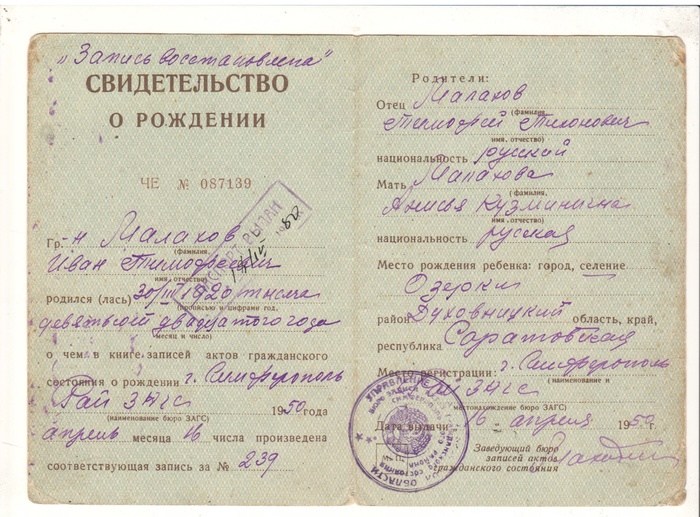 „Запись восстановлена"
СВИДЕТЕЛЬСТВО
О РОЖДЕНИИ
ЧЕ № 087139
ПАСПОРТ ВЫДАН
Гр. н Малахов
(фамилия,
Иван Тимофеевич
имя, отчество)
родился (лась) 30/III 1920 тысяча
(прописью и цифрами год,
девятьсот двадцатого года
месяц и число)
о чем в книге записей актов гражданского
состояния о рождении г. Симферополь
Рай ЗАГС 1950 года
(наименование бюро ЗАГС)
апрель месяца 16 числа произведена
соответствующая запись за № 239
Родители:
Отец Малахов
(фамилия,
Тимофей Тихонович
имя, отчество)
национальность русский
Мать Малахова
(фамилия,
Анисья Кузминична
имя, отчество)
национальность русская
Место рождения ребенка: город, селение
Озерки
район Духовницкий область, край,
республика Саратовская
Место регистрации: г. Симферополь
(наименование и
ЗАГС
местонахождение бюро ЗАГС)
Дата выдачи: 16 апреля 1950 г.
Заведующий бюро
записей актов
гражданского состояния